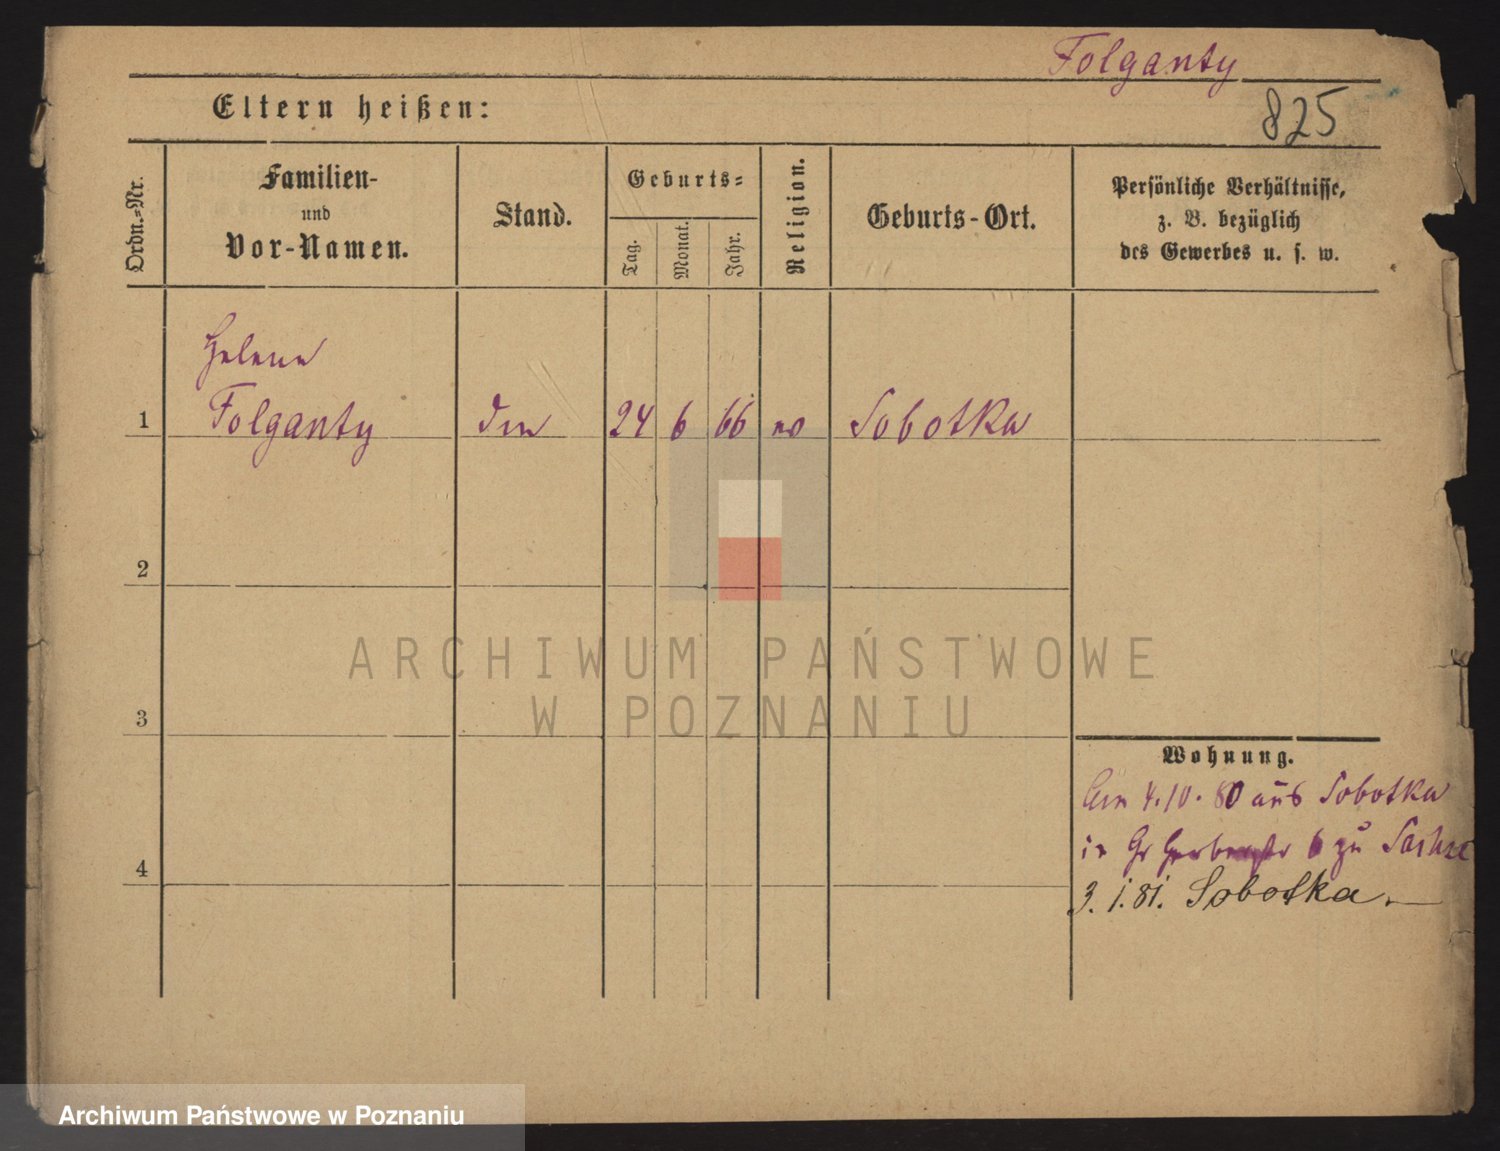 Folganty
825
Eltern heißen:
Ordn.=Nr.
Familien-
und
Vor-Namen.
Stand.
Geburts=
Tag.
Monat.
Jahr.
Religion.
Geburts-Ort.
Persönliche Verhältnisse,
z. B. bezüglich
des Gewerbes u. s. w.
Helene
1 Folganty 24 6 66 Sobotka
2
3
4
Wohnung.
4.10.80 aus Sobotka
in Gr Gerberstr 6 zu
3.1.81. Sobotka.
ARCHIWUM PAŃSTWOWE
W POZNANIU
Archiwum Państwowe w Poznaniu